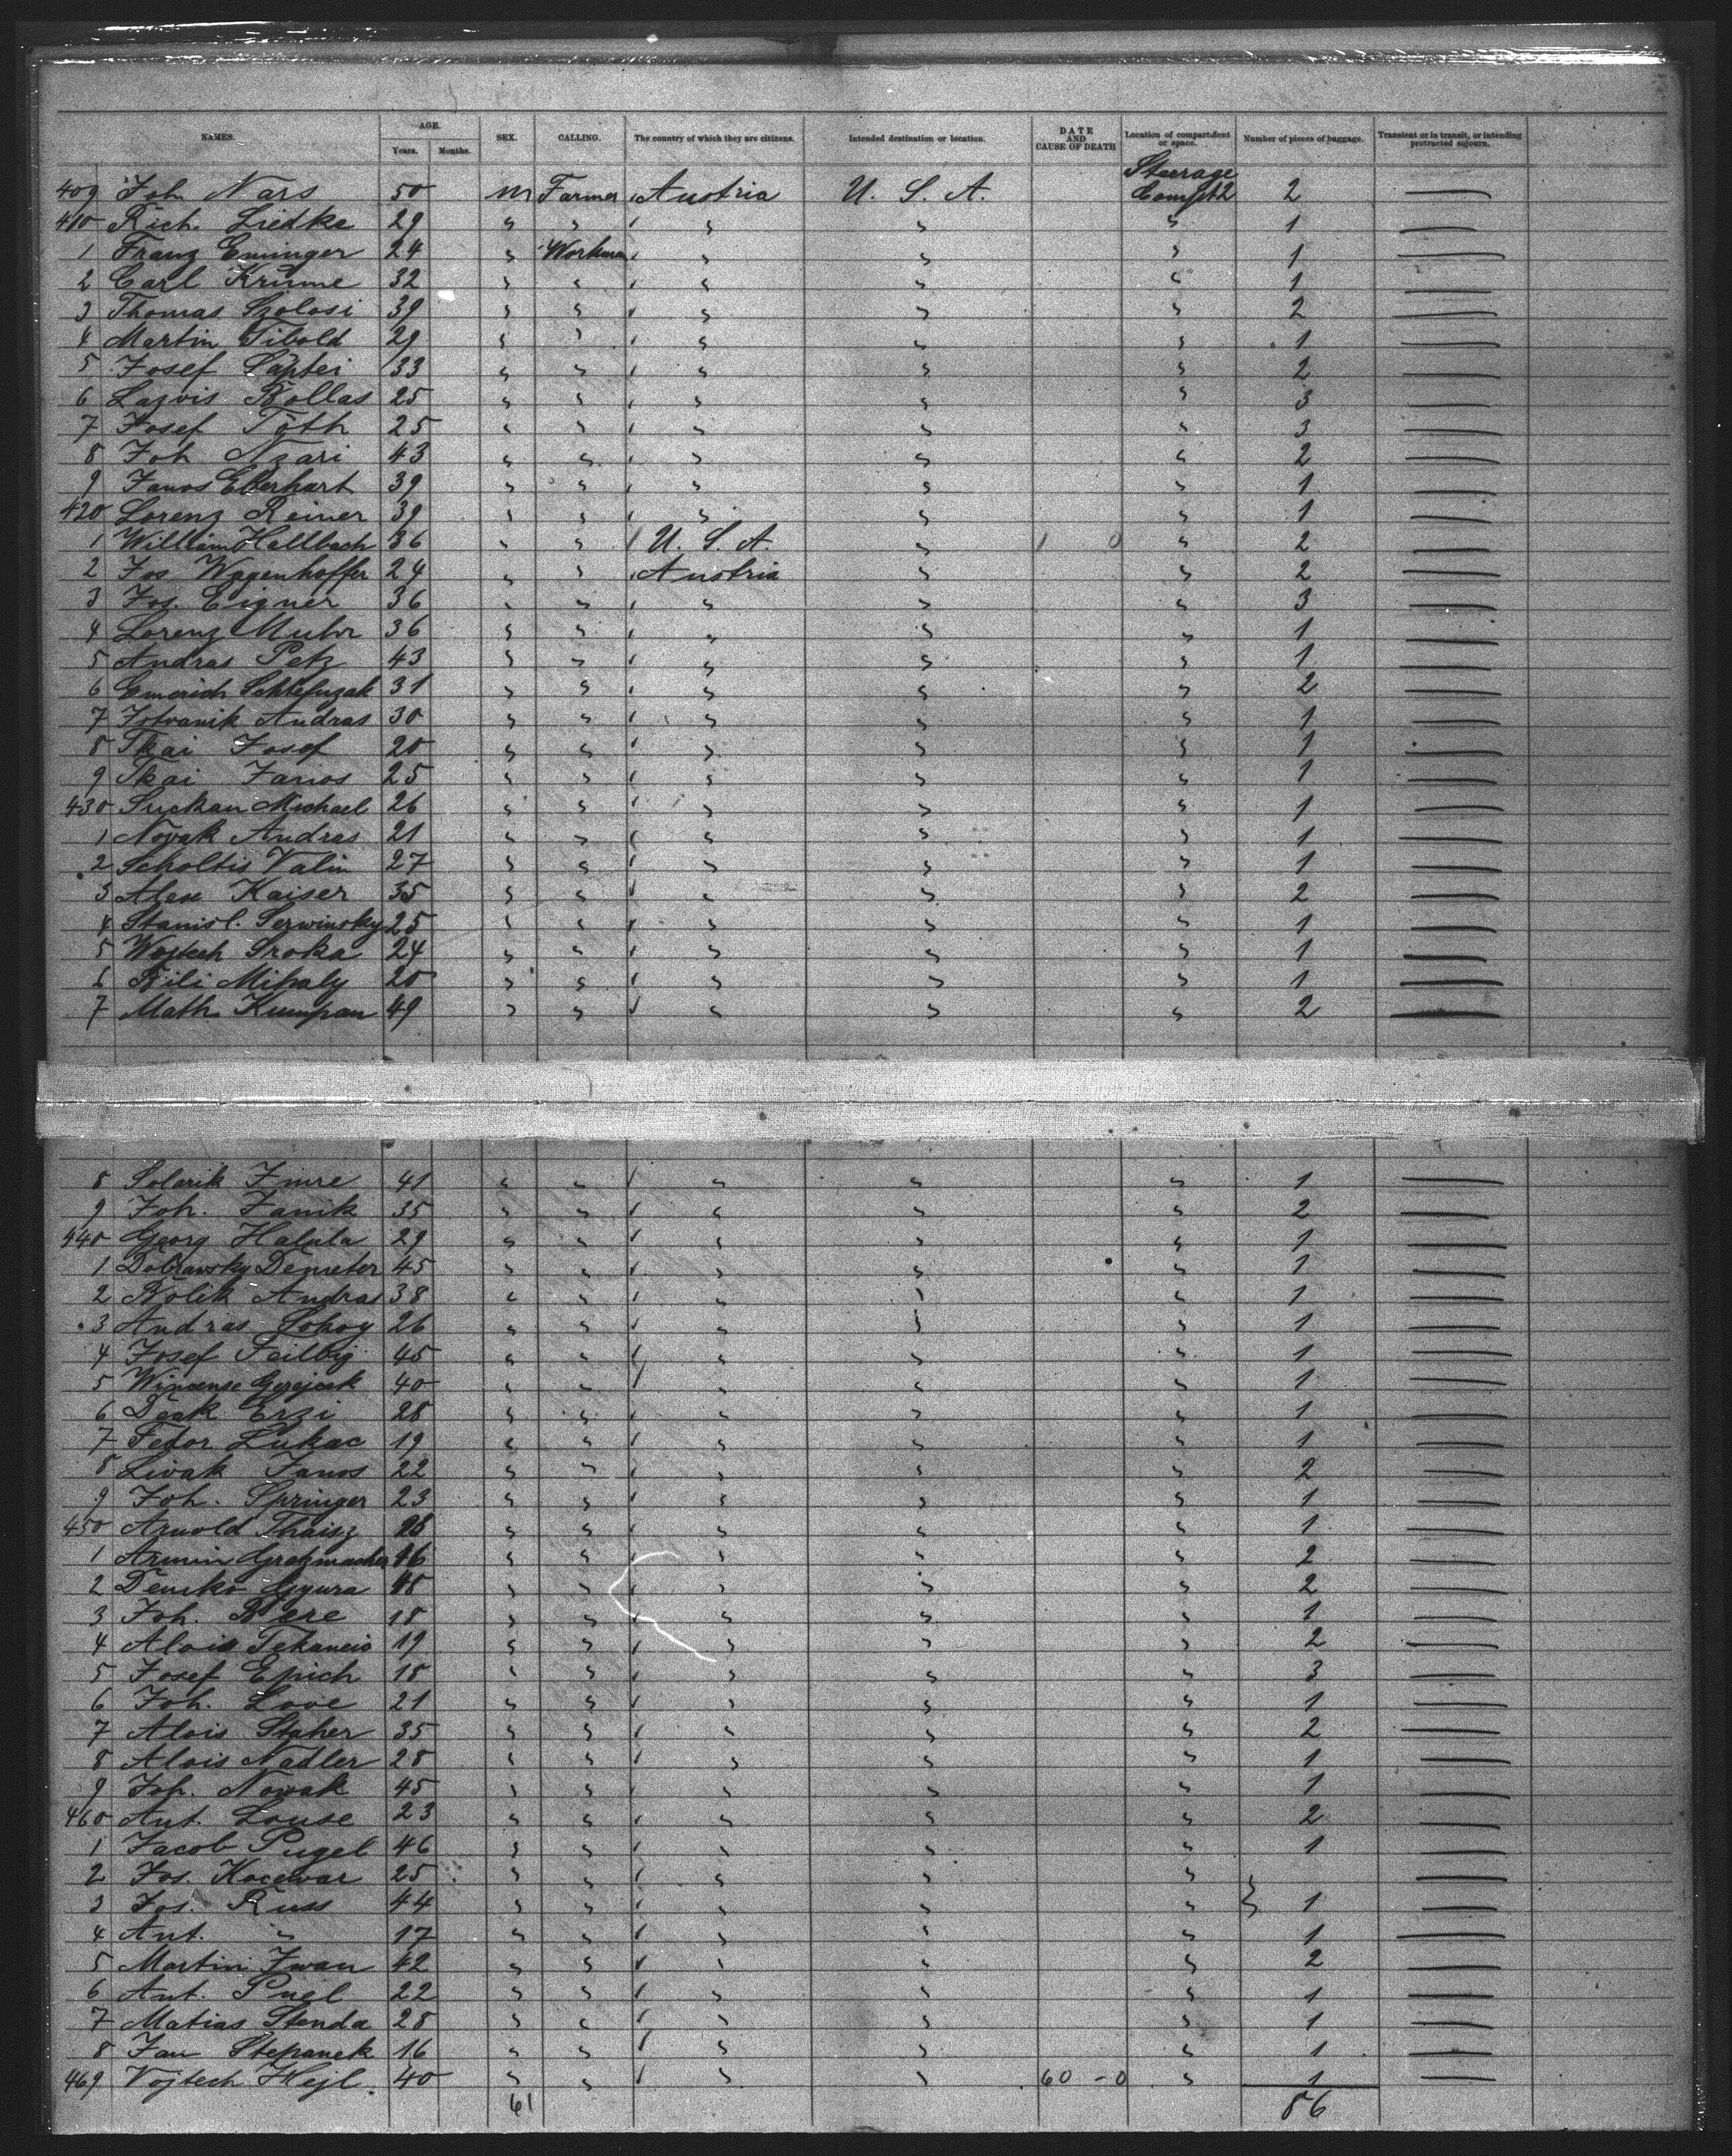 NAMES. AGE. Years. Months. SEX. CALLING. The country of which they are citizens. Intended destination or location. DATE AND CAUSE OF DEATH Location of compartment or space. Number of pieces of baggage. Transient or in transit, or intending protracted sojourn.
409 Joh. Nars 50 m Farmer Austria U. S. A. Steerage Compt 2 2 —
410 Rich. Liedke 29 " " " " " 1 —
1 Franz Eminger 24 " Workman " " " 1 —
2 Carl Krume 32 " " " " " 1 —
3 Thomas Szolosi 39 " " " " " 2 —
4 Martin Tibold 29 " " " " " 1 —
5 Josef 33 " " " " " 2 —
6 Kollas 25 " " " " " 3 —
7 Josef Toth 25 " " " " " 3 —
8 Joh Nzari 43 " " " " " 2 —
9 Janos Eberhart 39 " " " " " 1 —
420 Lorenz Reiner 39 " " " " " 1 —
1 William Hallbach 36 " " U. S. A. " 1 0 " 2 —
2 Jos Wagenhoffer 24 " " Austria " " 2 —
3 Jos. Eigner 36 " " " " " 3 —
4 Lorenz Muhr 36 " " " " " 1 —
5 Andras Petz 43 " " " " " 1 —
6 Emerich 31 " " " " " 2 —
7 Istvanik Andras 30 " " " " " 1 —
8 Tkai Josef 20 " " " " " 1 —
9 Tkai Janos 25 " " " " " 1 —
430 Suckan Michael 26 " " " " " 1 —
1 Novak Andras 21 " " " " " 1 —
2 Scholtis Valin 27 " " " " " 1 —
3 Alex Kaiser 35 " " " " " 2 —
4 Stanisl. Serwinsky 25 " " " " " 1 —
5 Wojtech Sroka 24 " " " " " 1 —
6 Bili Mihaly 20 " " " " " 1 —
7 Math. Kumpan 49 " " " " " 2 —
8 Solarik Imre 41 " " " " " 1 —
9 Joh. Janik 35 " " " " " 2 —
440 Georg Halula 29 " " " " " 1 —
1 Dobransky Demeter 45 " " " " " 1 —
2 Bolik Andras 38 " " " " " 1 —
3 Andras 26 " " " " " 1 —
4 Josef Feilbig 45 " " " " " 1 —
5 40 " " " " " 1 —
6 Deak Erzi 28 " " " " " 1 —
7 Fedor Lukac 19 " " " " " 1 —
8 Sivak Janos 22 " " " " " 2 —
9 Joh. Springer 23 " " " " " 1 —
450 Arnold Thaisz " " " " " 1 —
1 Armin Gratzmacher 16 " " " " " 2 —
2 Demko Gyura 18 " " " " " 2 —
3 Joh. Bere 18 " " " " " 1 —
4 Alois 19 " " " " " 2 —
5 Josef Epich 18 " " " " " 3 —
6 Joh. Love 21 " " " " " 1 —
7 Alois Staher 35 " " " " " 2 —
8 Alois Nadler 28 " " " " " 1 —
9 Joh. Nowak 45 " " " " " 1 —
460 Ant. Louse 23 " " " " " 2 —
1 Jacob Pugel 46 " " " " " 1 —
2 Jos. Kocevar 25 " " " " " —
3 Jos. Russ 44 " " " " " } 1 —
4 Ant. " 17 " " " " " 1 —
5 Martin Iwan 42 " " " " " 2 —
6 Ant. 22 " " " " " 1 —
7 Matias Stenda 28 " " " " " 1 —
8 Jan Stepanek 16 " " " " " 1 —
469 Vojtech Hejl. 40 " " " " 60 - 0 " 1 —
61 86